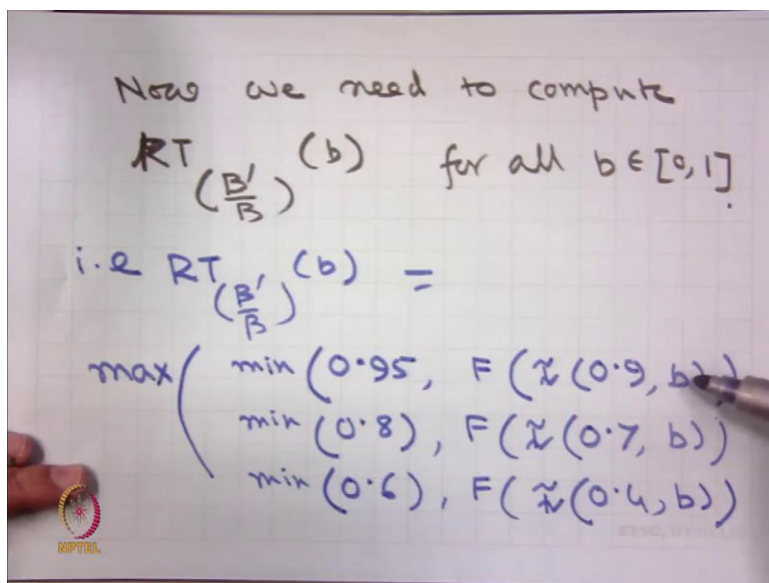 Now we need to compute
RT_(B'/B) (b) for all b ∈ [0, 1].
i.e RT_(B'/B) (b) =
max( min (0.95, F(≈(0.9, b))
min (0.8), F(≈(0.7, b))
min (0.6), F(≈(0.4, b))
NPTEL